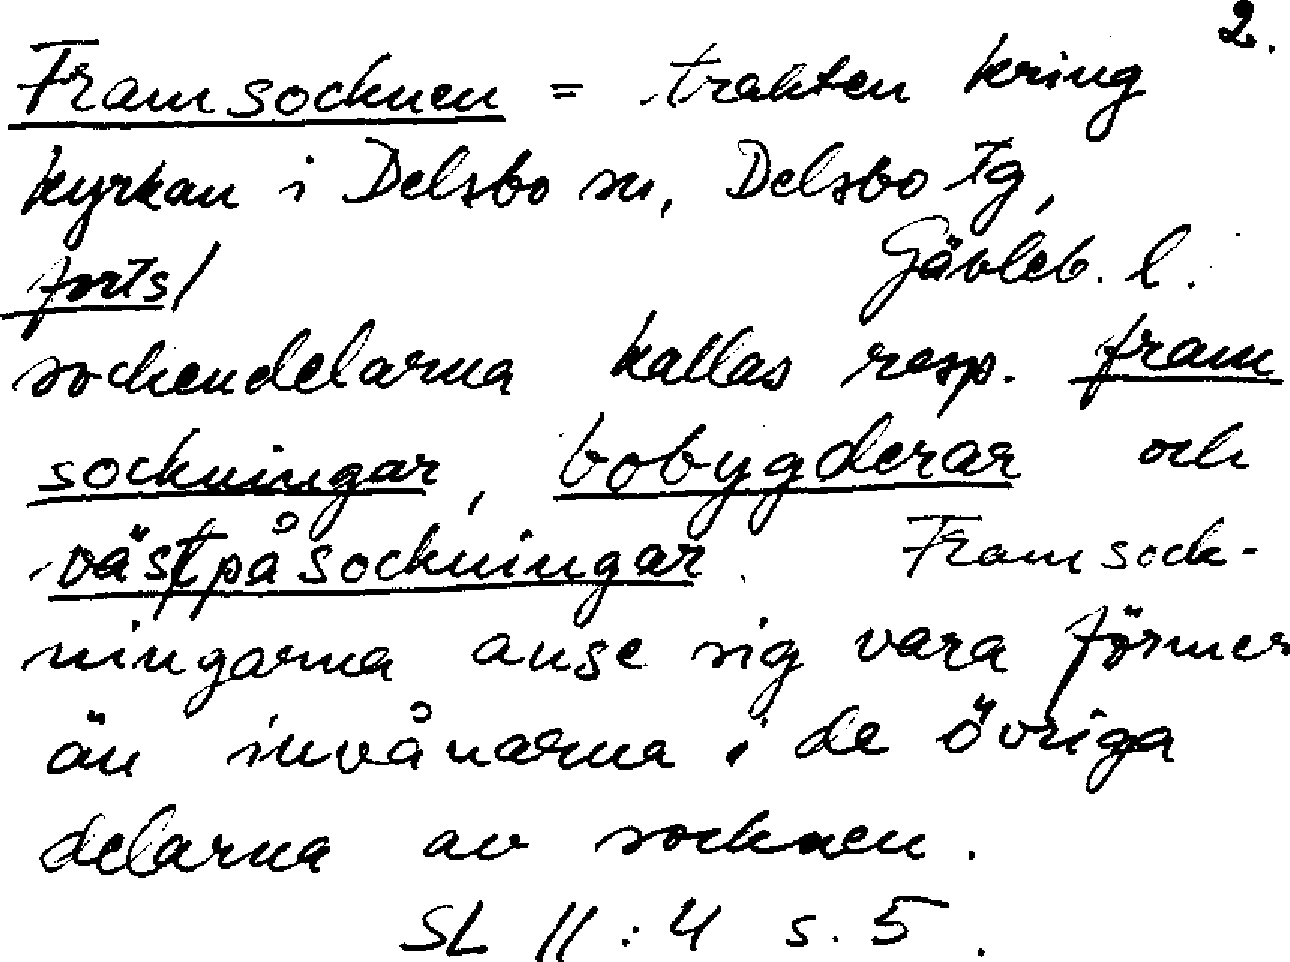 2.
Framsocknen = trakten kring
kyrkan i Delsbo sn, Delsbo tg,
Gävleb. l.
forts/
sockendelarna kallas resp. fram
sockningar, bobygderar och
västpåsockningar. Framsock-
ningarna anse sig vara förmer
än invånarna i de övriga
delarna av socknen.
SL 11:4 s. 5.